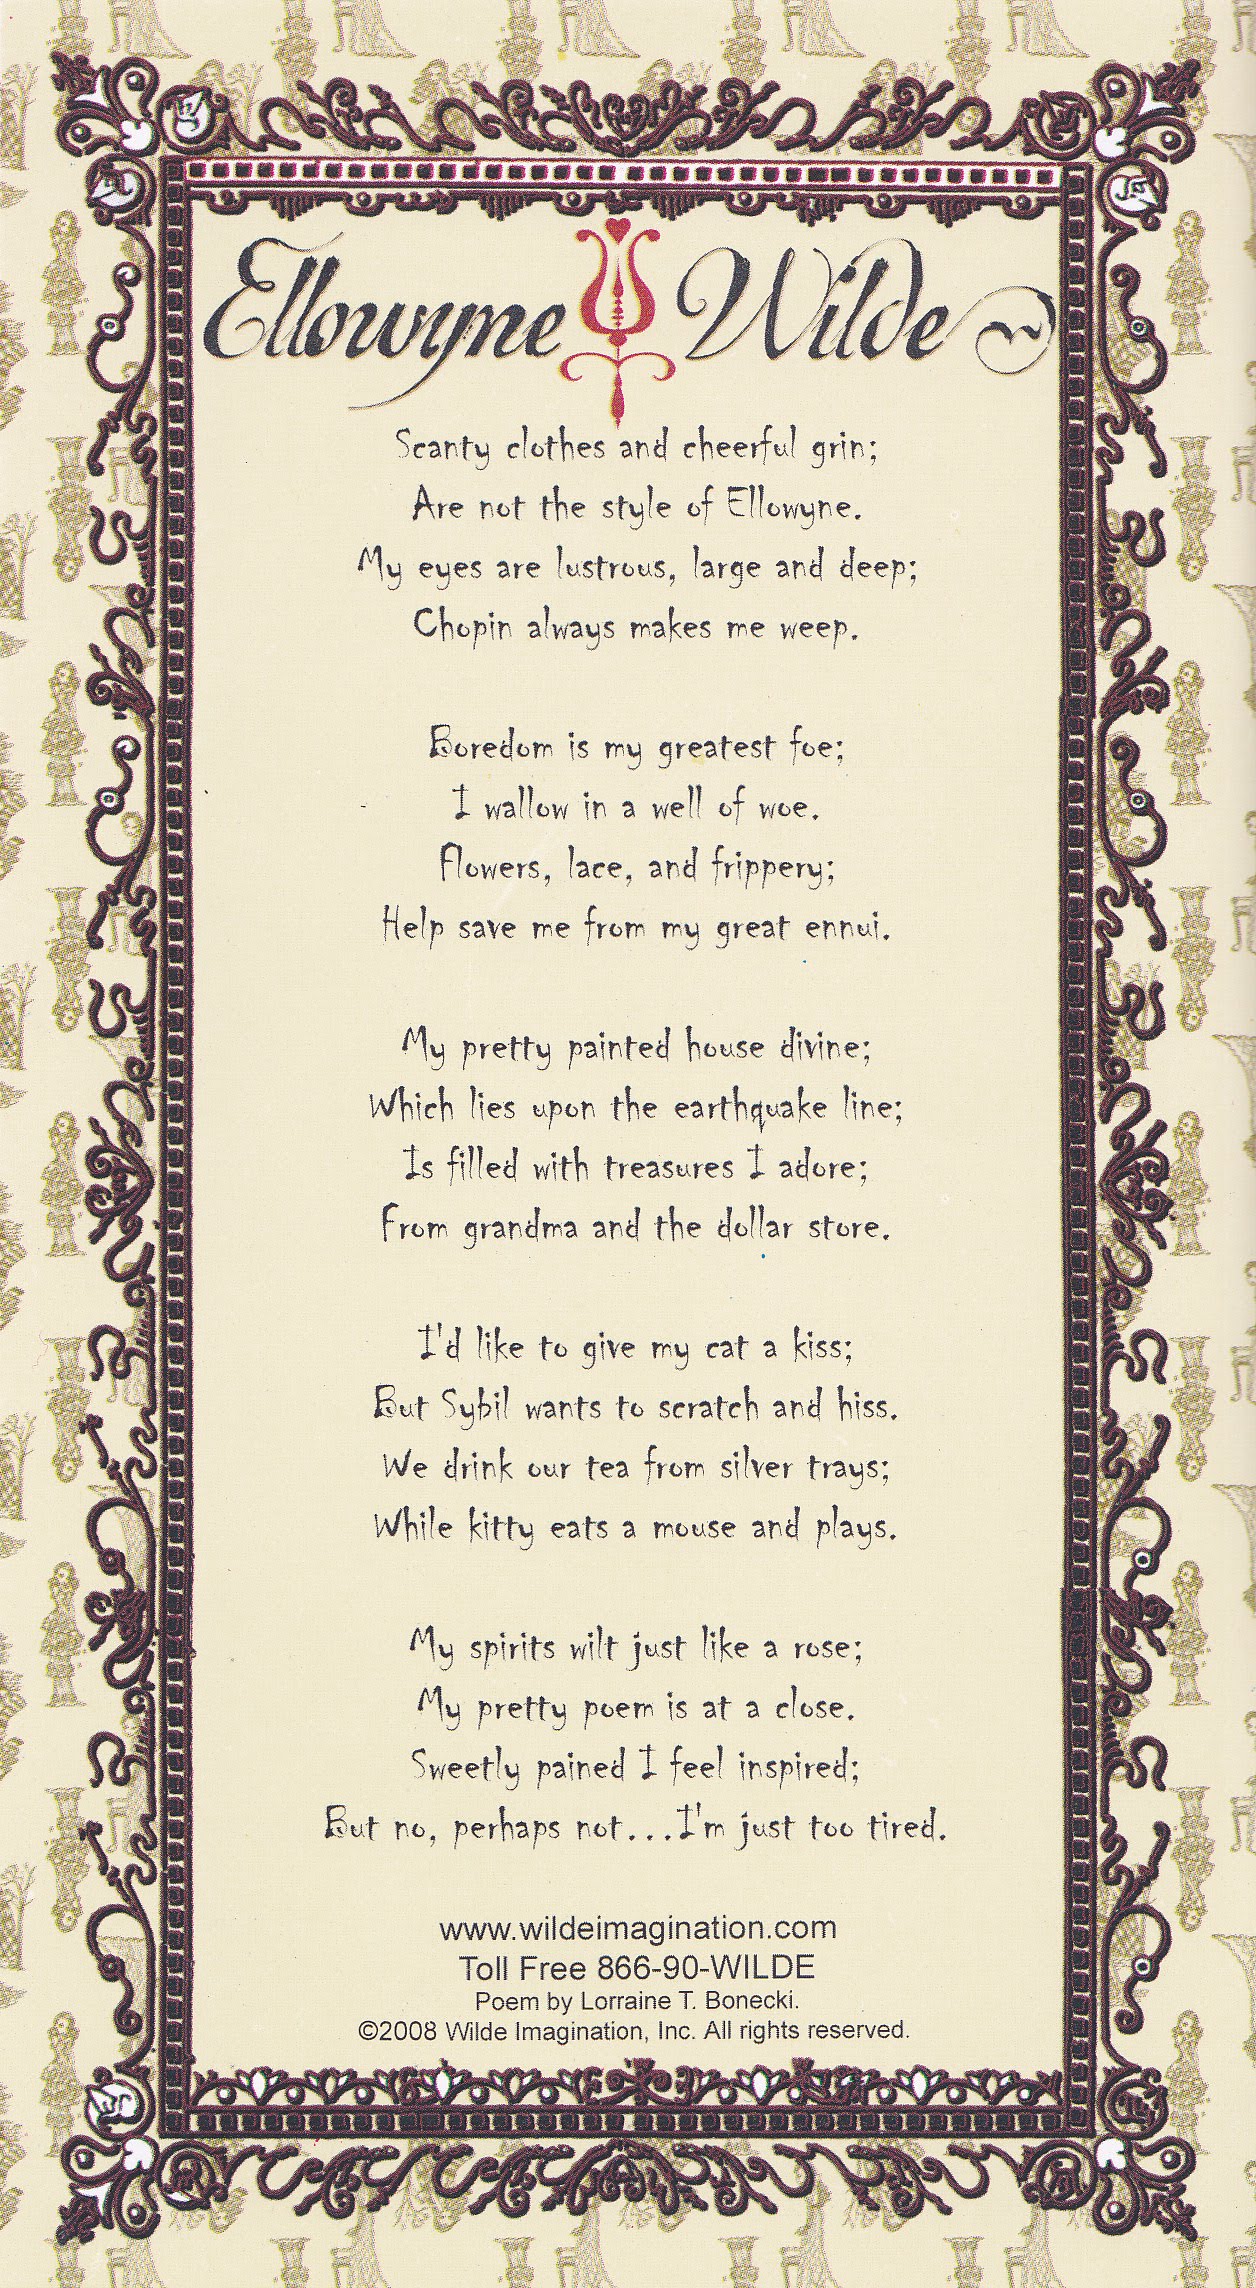 Ellowyne Wilde
Scanty clothes and cheerful grin;
Are not the style of Ellowyne.
My eyes are lustrous, large and deep;
Chopin always makes me weep.
Boredom is my greatest foe;
I wallow in a well of woe.
Flowers, lace, and frippery;
Help save me from my great ennui.
My pretty painted house divine;
Which lies upon the earthquake line;
Is filled with treasures I adore;
From grandma and the dollar store.
I'd like to give my cat a kiss;
But Sybil wants to scratch and hiss.
We drink our tea from silver trays;
While kitty eats a mouse and plays.
My spirits wilt just like a rose;
My pretty poem is at a close.
Sweetly pained I feel inspired;
But no, perhaps not...I'm just too tired.
www.wildeimagination.com
Toll Free 866-90-WILDE
Poem by Lorraine T. Bonecki.
©2008 Wilde Imagination, Inc. All rights reserved.